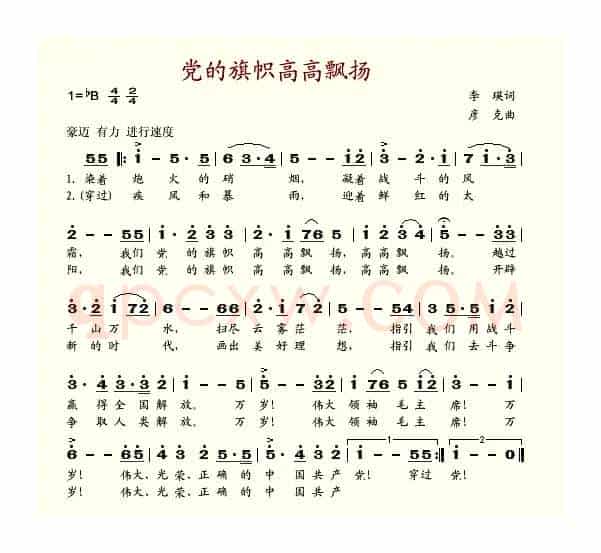 党的旗帜高高飘扬
1=♭B 4/4 2/4
李 瑛词
彦 克曲
豪迈 有力 进行速度
55 ‖: i - 5·5 | 6 3·4 5 | 5 - - i2 | 3·2 i·4 | 7 i·3
1. 染着 炮 火 的 硝 烟, 凝着 战 斗 的 风
2. (穿过) 疾 风 和 暴 雨, 迎着 鲜 红 的 太
2 - - 55 | i·2 33 | 2·i 76 5 | 3·2 34 | 5 - - 33
霜, 我们 党 的 旗帜 高 高 飘 扬, 高高 飘 扬。 越过
阳, 我们 党 的 旗帜 高 高 飘 扬, 高高 飘 扬。 开辟
qpcxw.COM
3·2 i 72 | i - - 66 | 2·i 72 | 5 - - 54 | 3 5·5 i 2
千 山 万 水, 扫尽 云 雾 茫 茫, 指引 我 们 用 战斗
新 的 时 代, 画出 美 好 理 想, 指引 我 们 去 斗争
3·4 3·3 2 | i - - 5 | 5 - - 32 | i 76 5 i2 | 3 - - i
赢 得 全 国 解 放。 万 岁! 伟大 领 袖 毛 主 席! 万
争 取 人 类 解 放。 万 岁! 伟大 领 袖 毛 主 席! 万
6 - - 65 | 4·5 32 | 5·4 32 | i - - 55 :‖ i - - 0 ‖
1
2
岁! 伟大、光 荣、正 确 的 中 国 共产 党! 穿过 党!
岁! 伟大、光 荣、正 确 的 中 国 共产